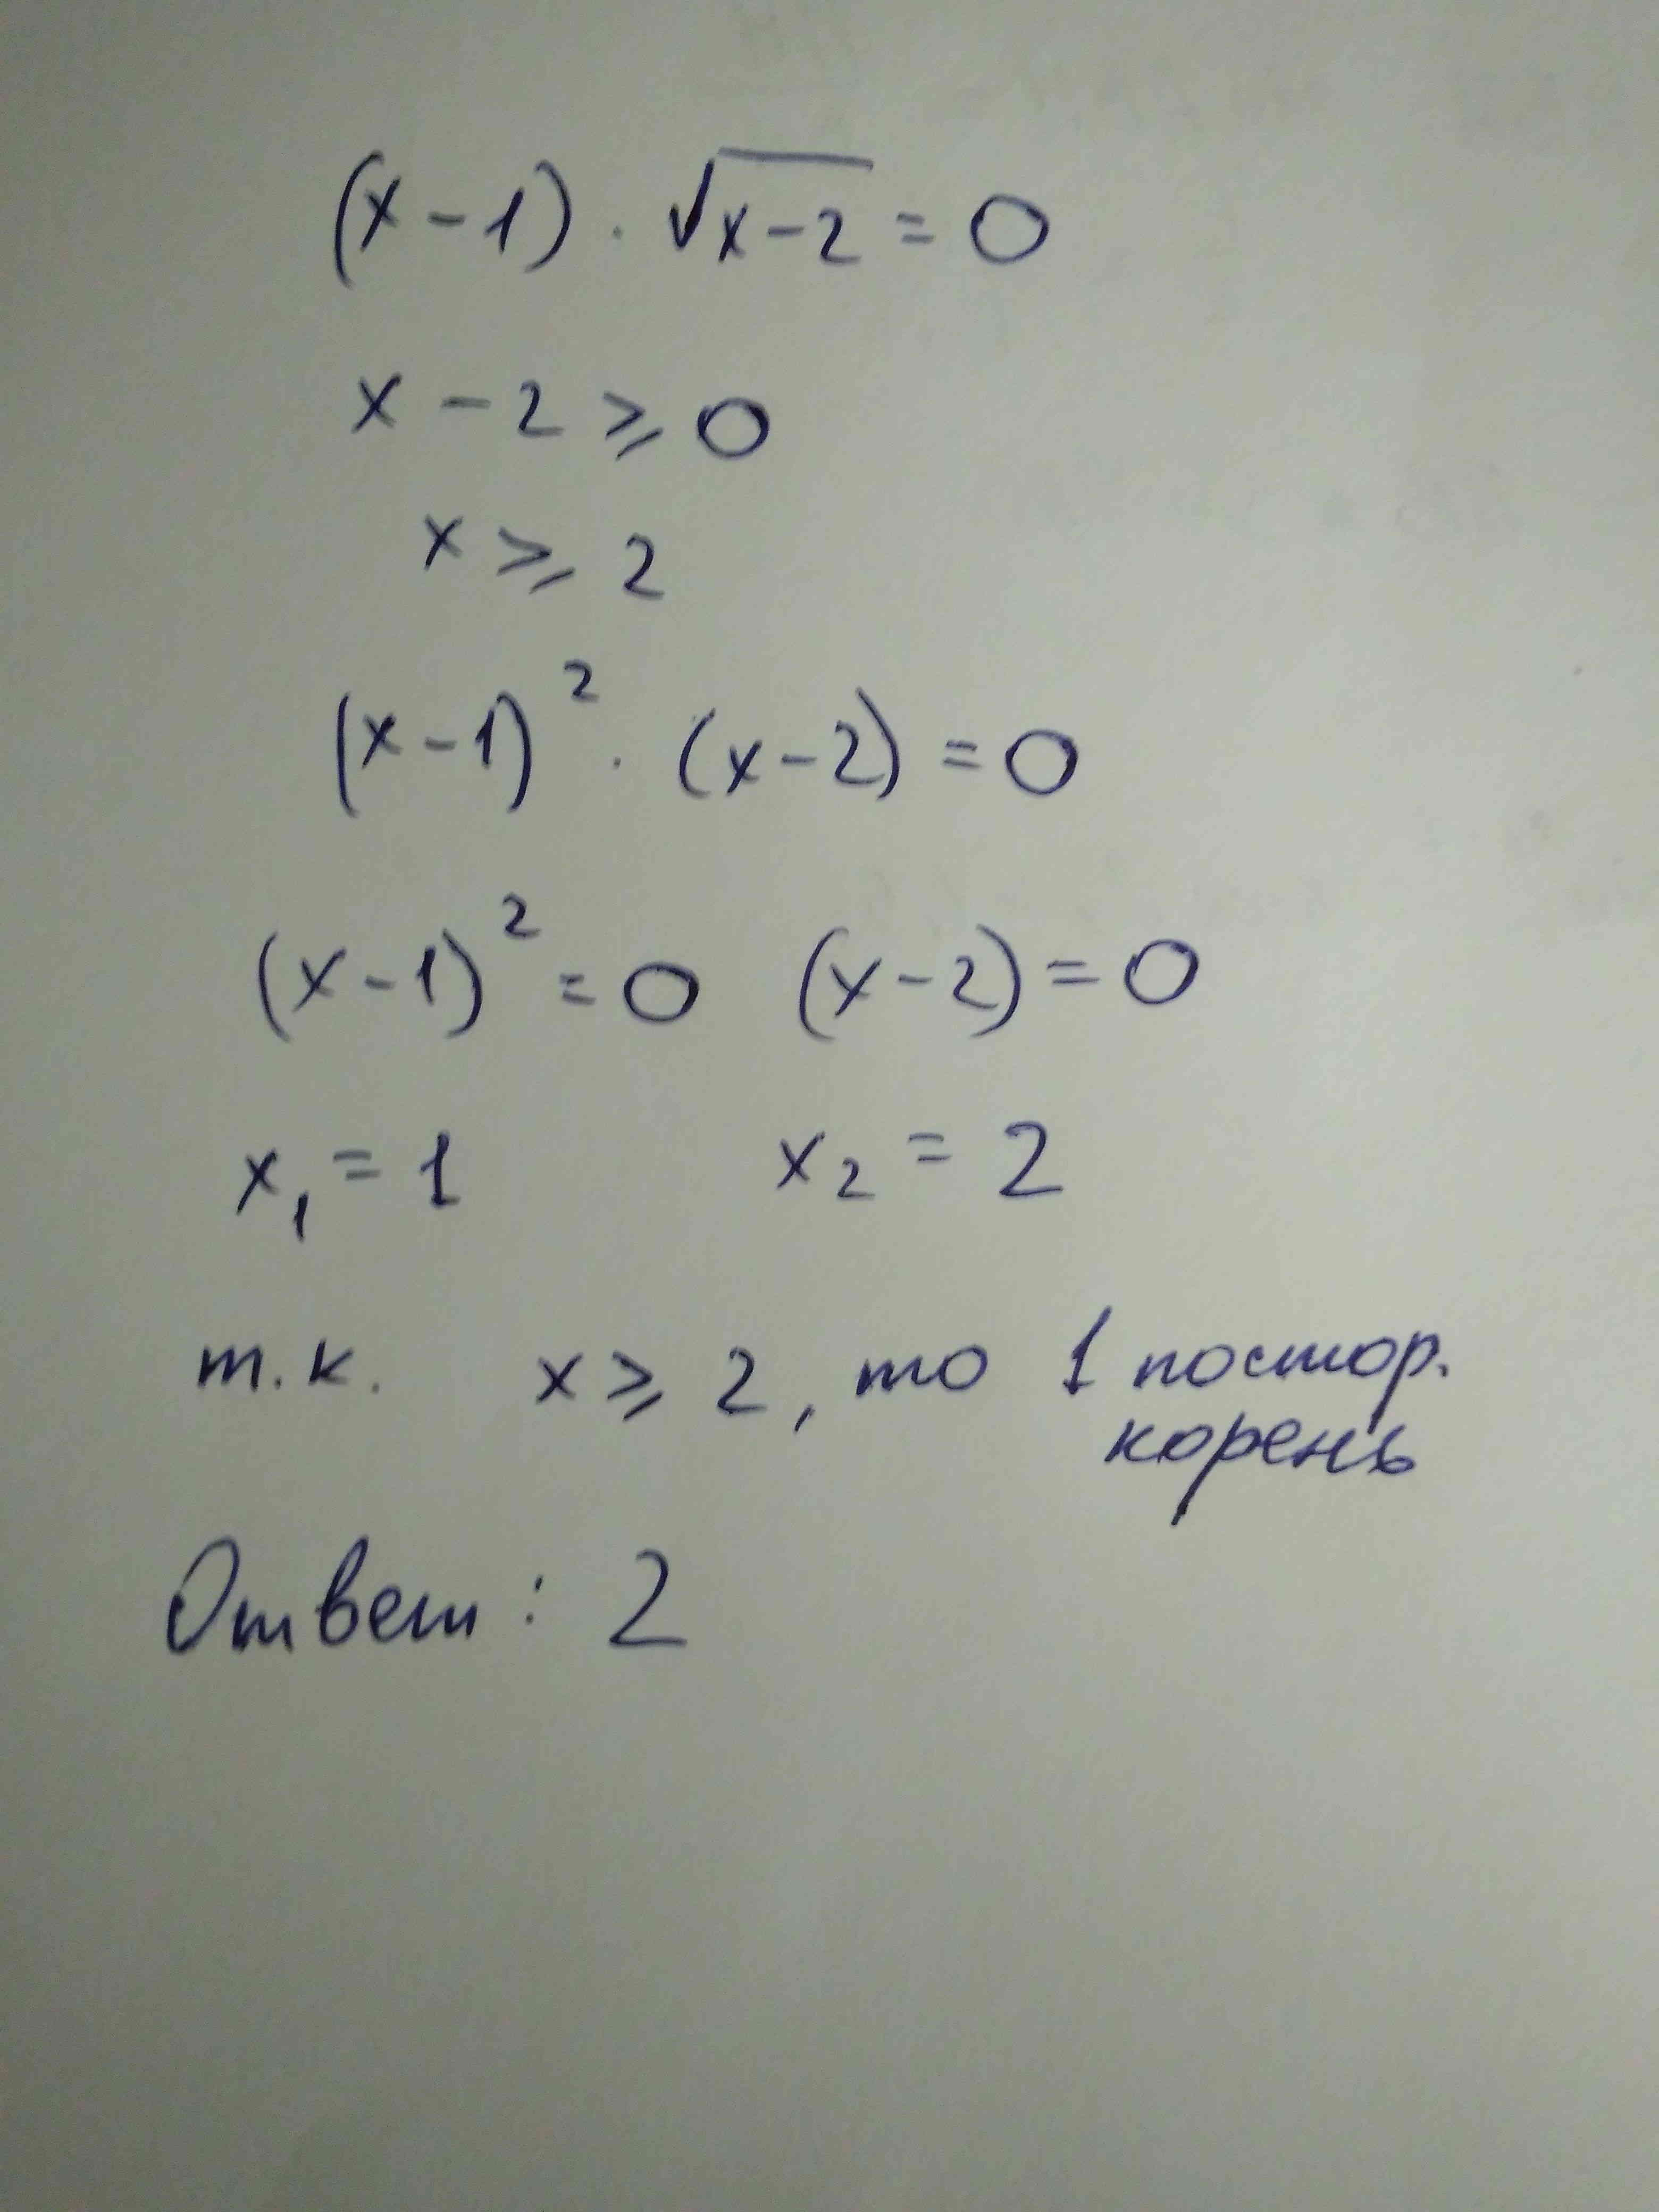 (x-1) · √x-2 = 0
x - 2 ⩾ 0
x ⩾ 2
(x-1)² · (x-2) = 0
(x-1)² = 0 (x-2) = 0
x₁ = 1 x₂ = 2
т.к. x ⩾ 2, то 1 постор.
корень
Ответ: 2